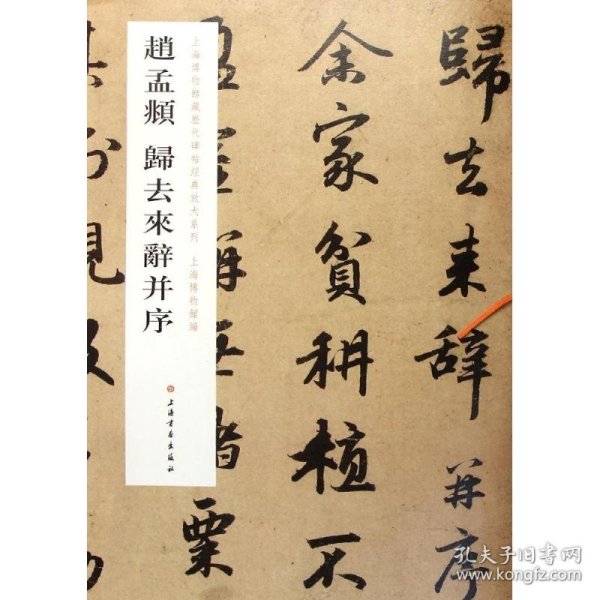 歸去来辞并序
余家貧耕植不
粟
上海博物館藏歷代碑帖經典放大系列 上海博物館編
趙孟頫 歸去來辭并序
上海書畫出版社
孔夫子旧书网
www.kongfz.com